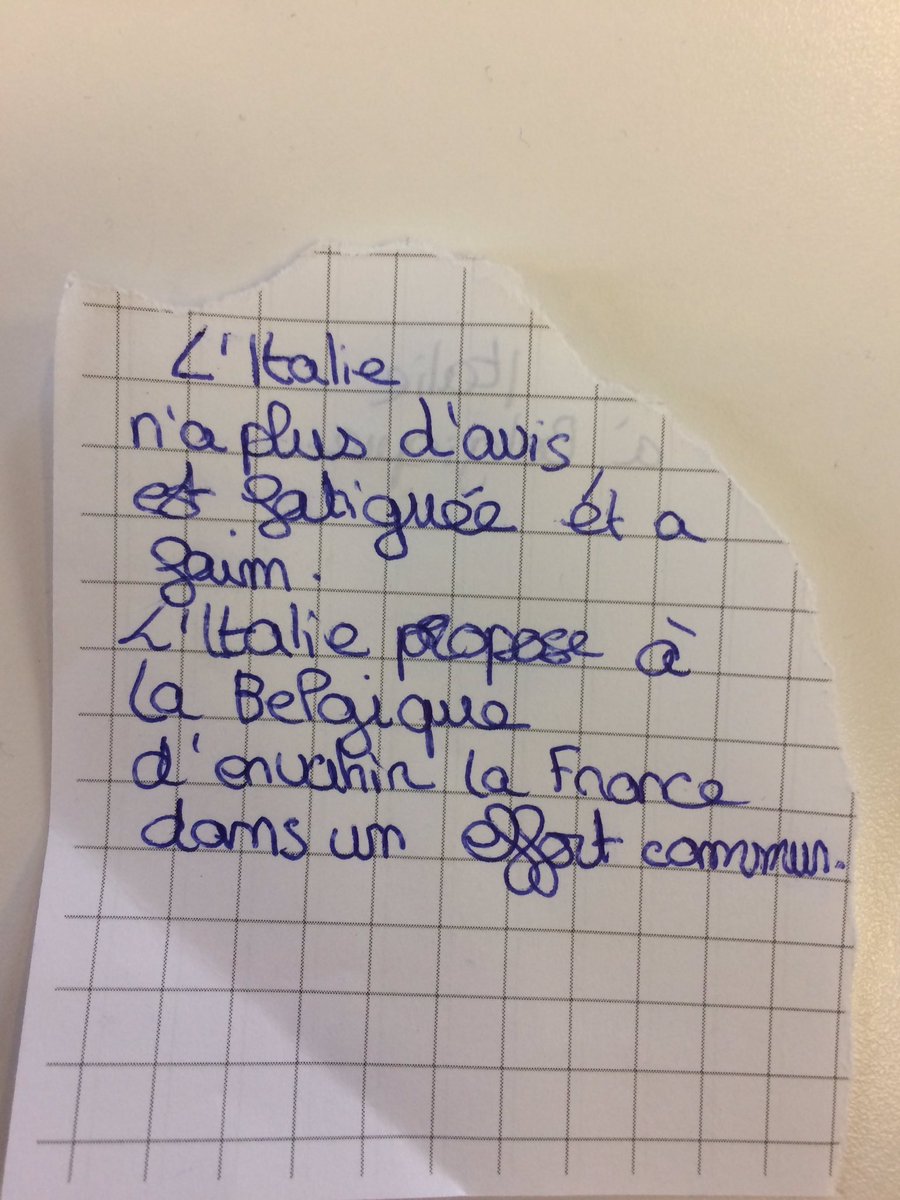 L'Italie
n'a plus d'avis,
est fatiguée et a
faim.
L'Italie propose à
la Belgique
d'envahir la France
dans un effort commun.
Italie